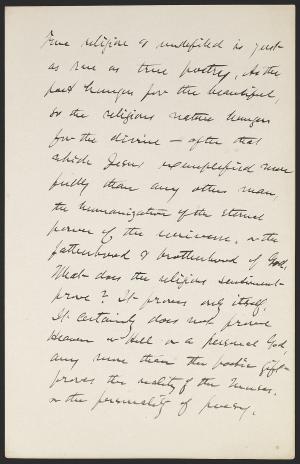 True religion & undefiled is just
as rare as true poetry. As the
poet hungers for the beautiful,
so the religious nature hungers
for the divine — after that
which Jesus exemplified more
fully than any other man,
the humanization of the Eternal
power of the universe, or the
fatherhood & brotherhood of God.
What does the religious sentiment
prove? It proves only itself.
It certainly does not prove
Heaven or Hell or a personal God,
any more than the poetic gift
proves the reality of the Muses,
or the personality of poesy.